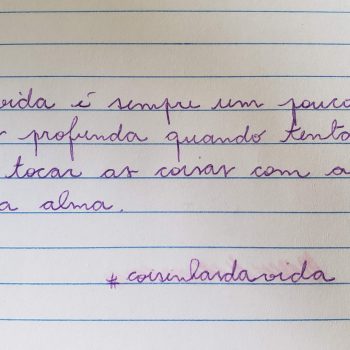 vida é sempre um pouco
profunda quando tenta
tocar as coisas com a
alma.
#coisinhasdavida